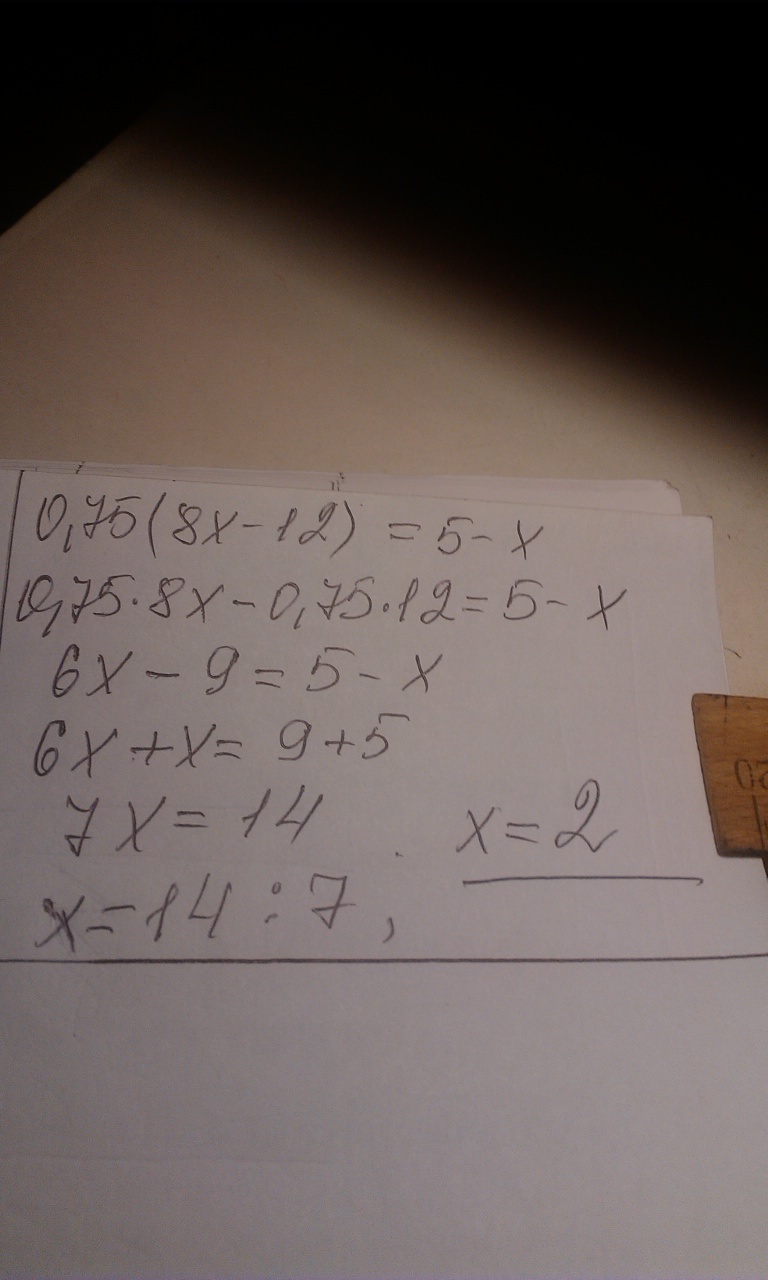 0,75(8x-12) = 5-x
0,75·8x-0,75·12=5-x
6x-9=5-x
6x+x=9+5
7x=14
x=2
x=14:7,